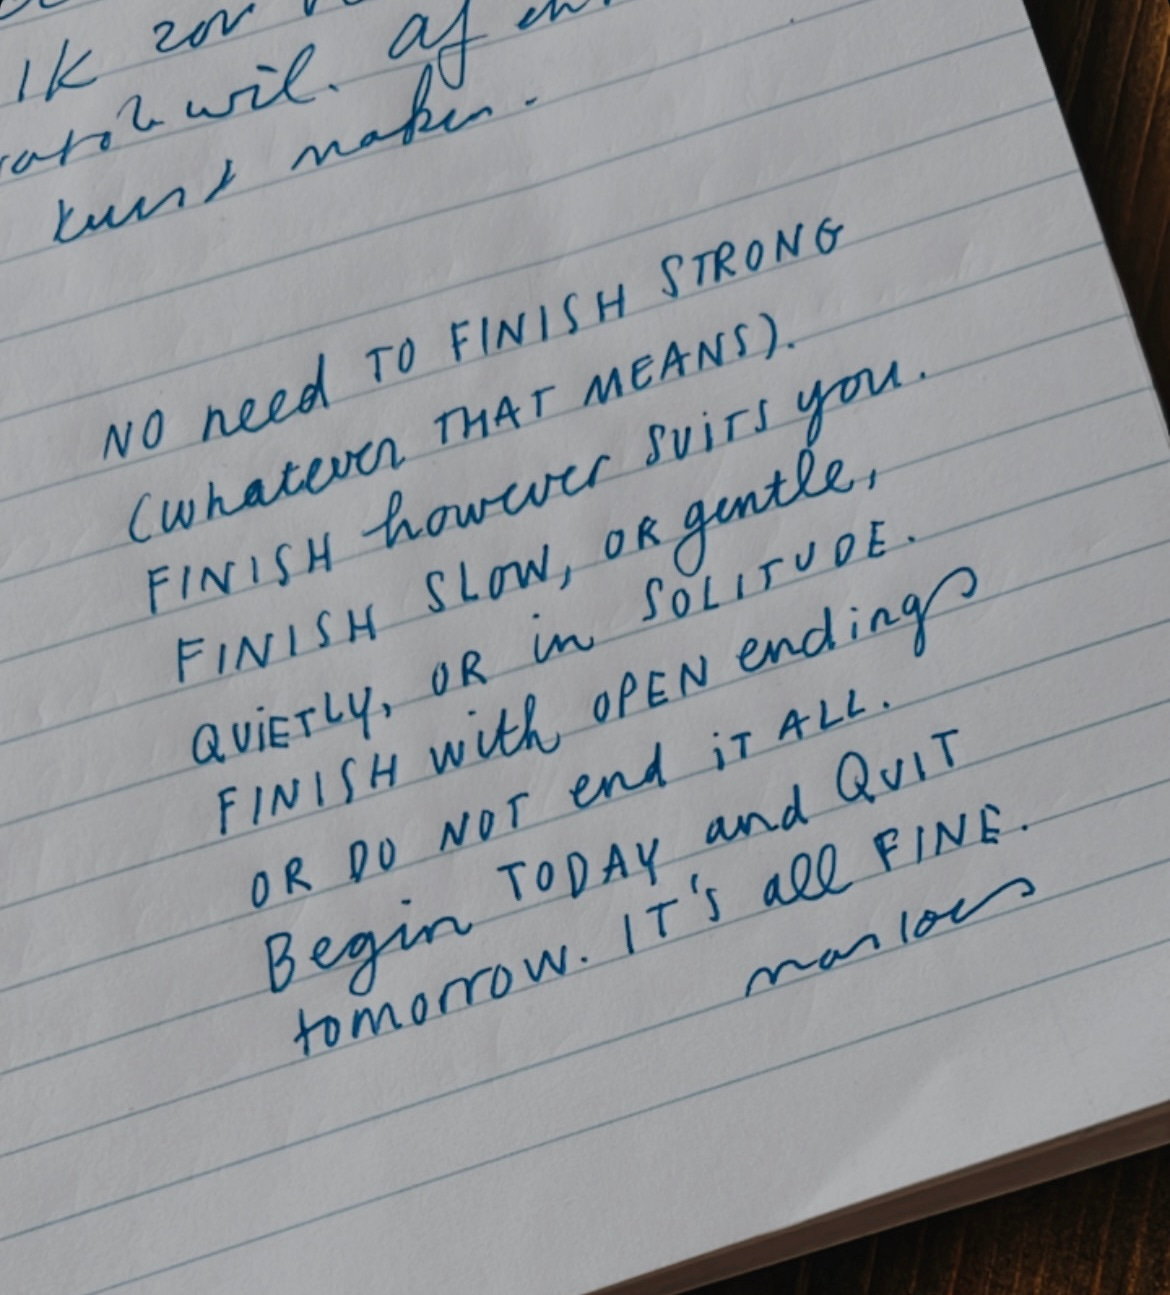 Ik zou
wil. af en
kunst maken.
NO need TO FINISH STRONG
(whatever THAT MEANS).
FINISH however SUiTS you.
FINISH SLOW, OR gentle,
QUiETLY, OR in SOLITUDE.
FINISH with OPEN endings
OR DO NOT end iT ALL.
Begin TODAY and QUIT
tomorrow. IT'S all FINE.
marloes